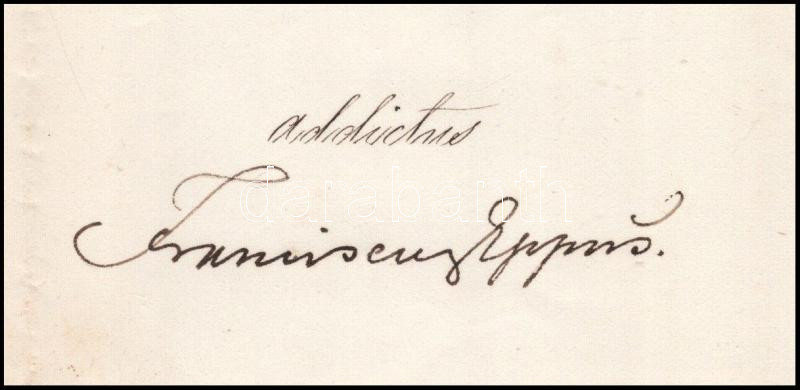 addictus
Franciscus Eppus.
darabanth